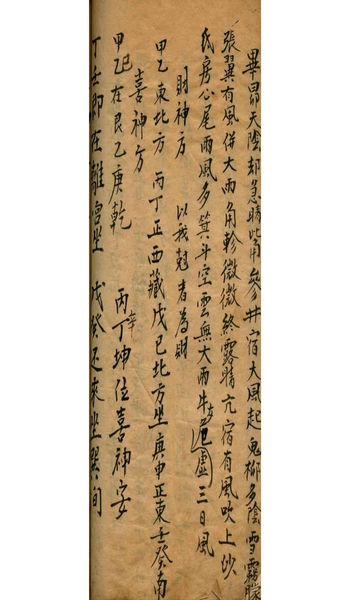 畢昴天陰却急晴觜參井宿大風起鬼柳多陰雪霧朦
張翼有風併大雨角軫微微終露晴亢宿有風吹上沙
氐房心尾雨風多箕斗空雲無大雨牛女危虛三日風
財神方 以我尅者為財
甲乙東北方 丙丁正西藏戊己北方坐庚申正東壬癸南
喜神方
甲己在艮乙庚乾 丙辛丁坤位喜神安
丁壬即在離宮坐 戊癸還來坐巽旬